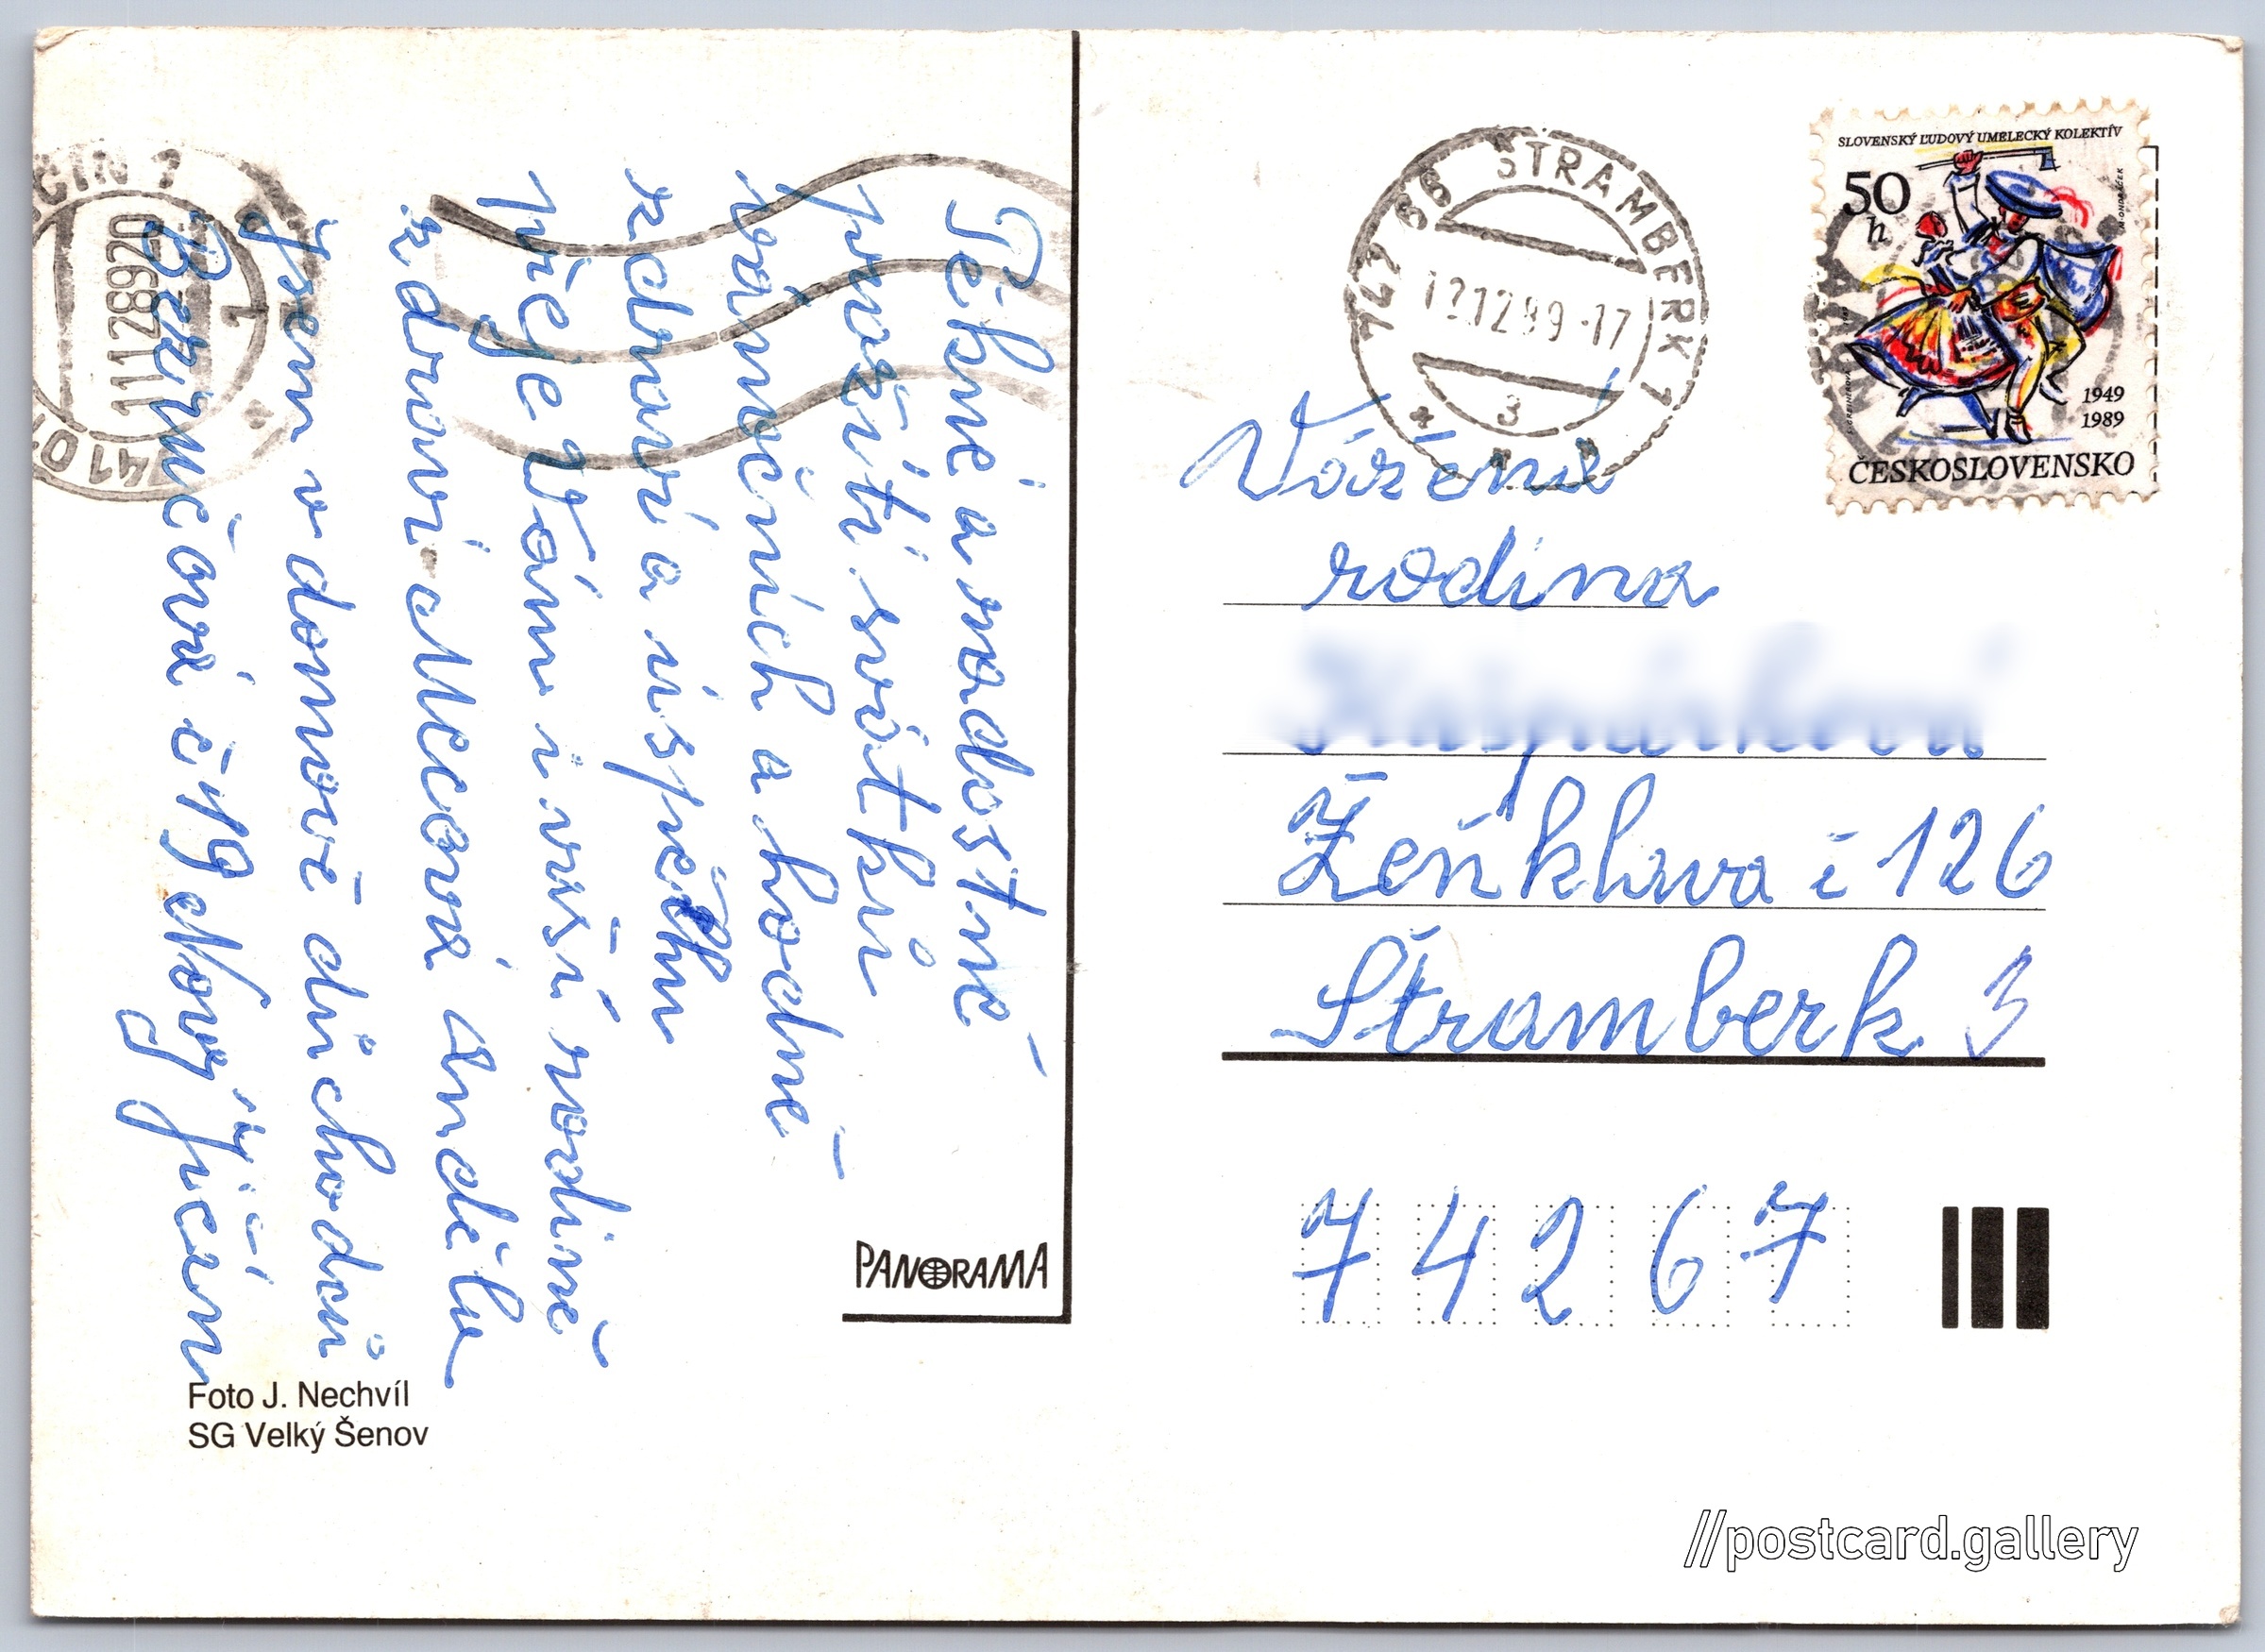 Pěkné a radostné
prožití svátků
vánočních a hodně
zdraví a úspěchu
přeje Vám i vaší rodině
Anděla
Jsem v domově důchodců
Bezručová č 19 Nový Jičín
PANORAMA
Foto J. Nechvíl
SG Velký Šenov
ČÍN 1
111289 20
1
742 66 ŠTRAMBERK 1
121289-17
3
SLOVENSKÝ ĽUDOVÝ UMELECKÝ KOLEKTÍV
50
h
1949
1989
ČESKOSLOVENSKO
Vážená
rodina
Ženklava č 126
Štramberk 3
74267
//postcard.gallery